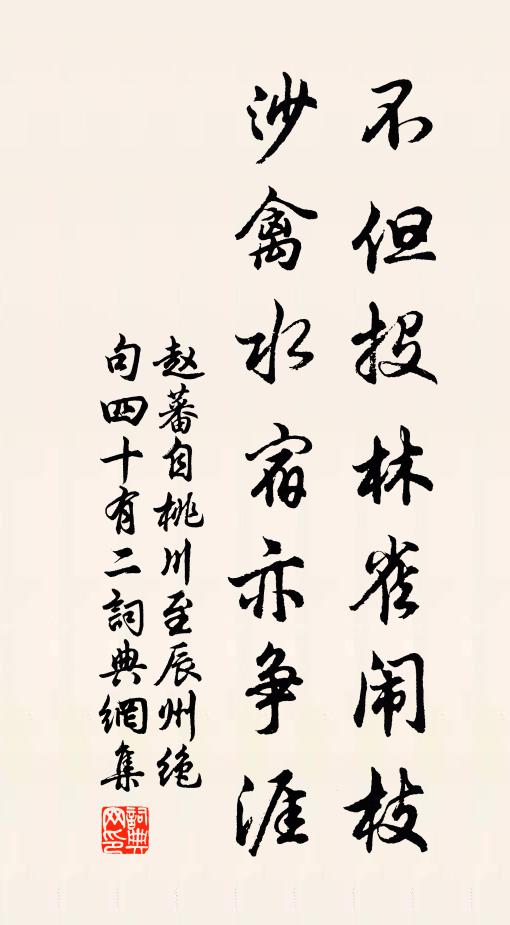 不但投林雀闹枝
沙禽水宿亦争涯
赵蕃自桃川至辰州绝
句四十有二詞典網集
詞典
网印